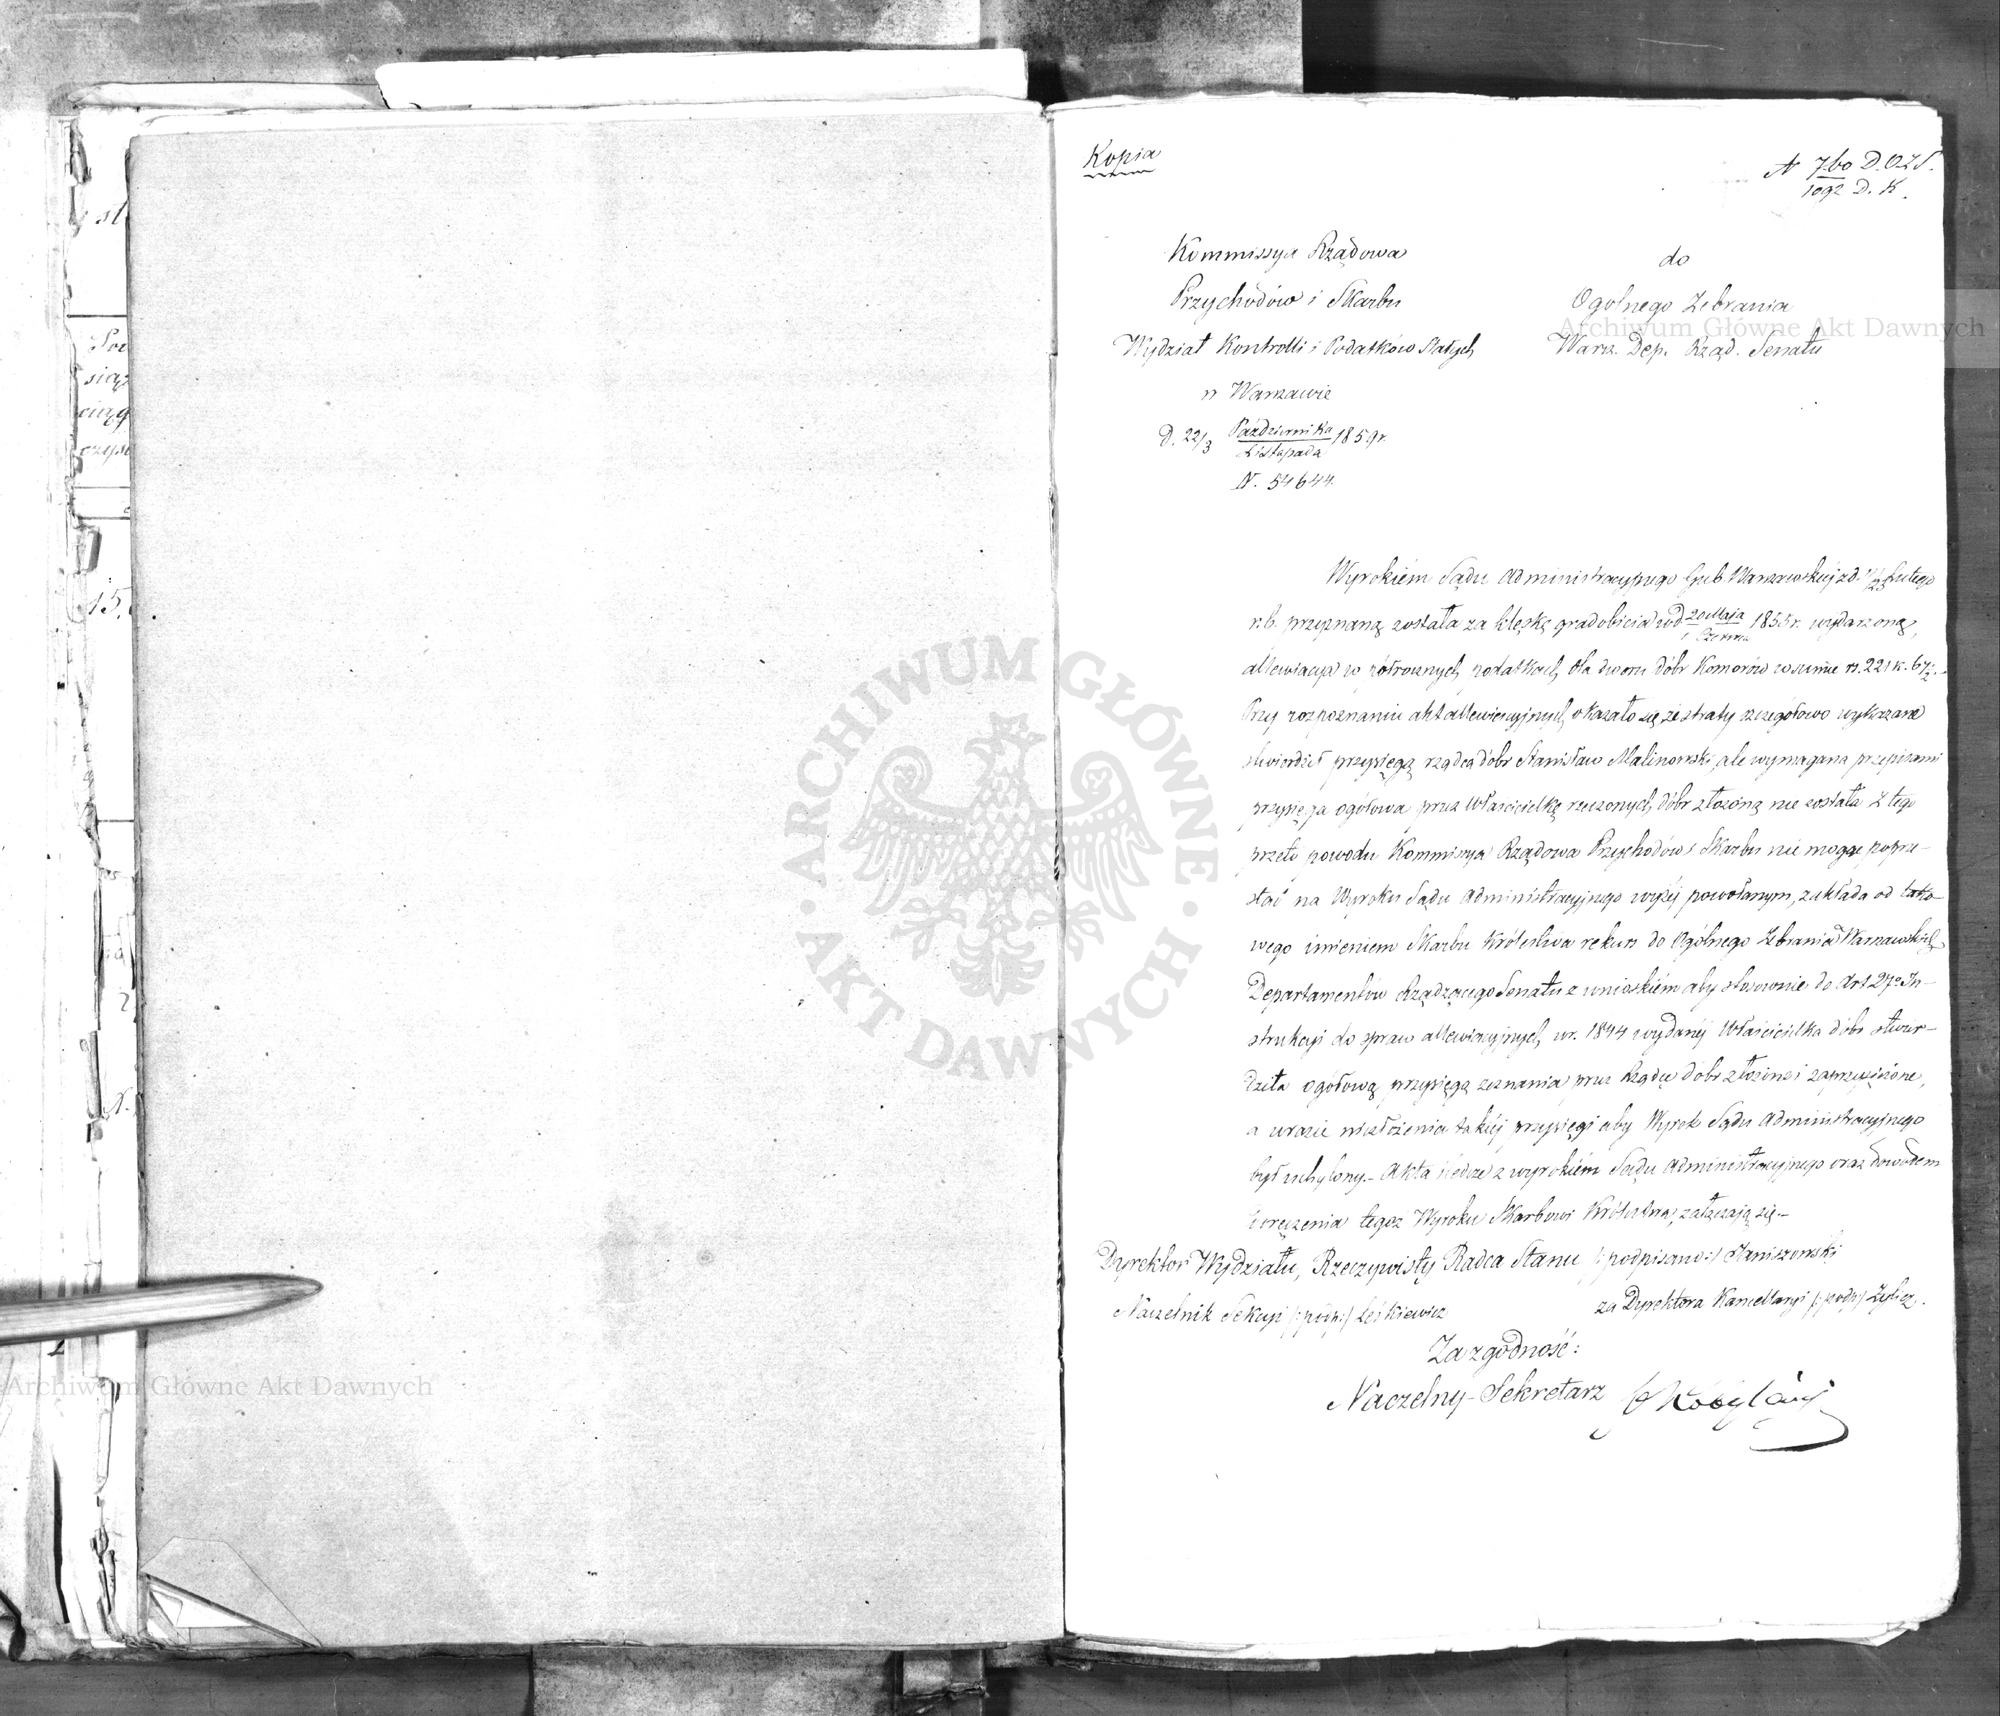 Kopia
N 760 D.O.Z.S.
1092 D. K.
Kommissya Rządowa
Przychodów i Skarbu
Wydział Kontrolli i Podatków Stałych
w Warszawie
D. 22/3 Października/Listopada 1859 r.
N. 54644.
do
Ogolnego Zebrania
Warsz. Dep. Rząd. Senatu
Wyrokiem Sądu Administracyjnego Gub. Warszawskiej z d. Lutego
r.b. przyznaną została za klęskę gradobicia w d 20 Maja/1 Czerwca 1855 r. wydarzoną,
allewiacya w półrocznych podatkach dla dworu dóbr Komorów w summie rs. 221 k. 67½.
Przy rozpoznaniu akt allewiacyjnych okazało się, że straty szczegółowo wykazane
stwierdził przysięgą rządca dóbr Stanisław Malinowski, ale wymagana przepisami
przysięga ogółowa przez Właścicielkę rzeczonych dóbr złożoną nie została Z tego
przeto powodu Kommissya Rządowa Przychodów i Skarbu nie mogąc poprze-
stać na Wyroku Sądu Administracyjnego wyżej powołanym, zakłada od tako-
wego imieniem Skarbu Królestwa rekurs do Ogólnego Zebrania Warszawskich
Departamentów Rządzącego Senatu z wnioskiem aby stosownie do Art 27o In-
strukcyi do spraw allewiacyjnych w r. 1844 wydanej Właścicielka dóbr stwier-
dziła ogółową przysięgą zeznania przez Rządcę dóbr złożone i zaprzysiężone,
a w razie niezłożenia takiej przysięgi aby Wyrok Sądu Administracyjnego
był uchylony.- Akta śledcze z wyrokiem Sądu Administracyjnego oraz dowodem
doręczenia tegoż Wyroku Skarbowi Królestwa, załączają się.-
Dyrektor Wydziału, Rzeczywisty Radca Stanu /:podpisano:/ Staniszewski
Naczelnik Sekcyi /:podp:/ Leśkiewicz
za Dyrektora Kancellaryi /:podp:/
Za zgodność:
Naczelny-Sekretarz
Archiwum Główne Akt Dawnych
ARCHIWUM GŁÓWNE
AKT DAWNYCH
Archiwum Główne Akt Dawnych